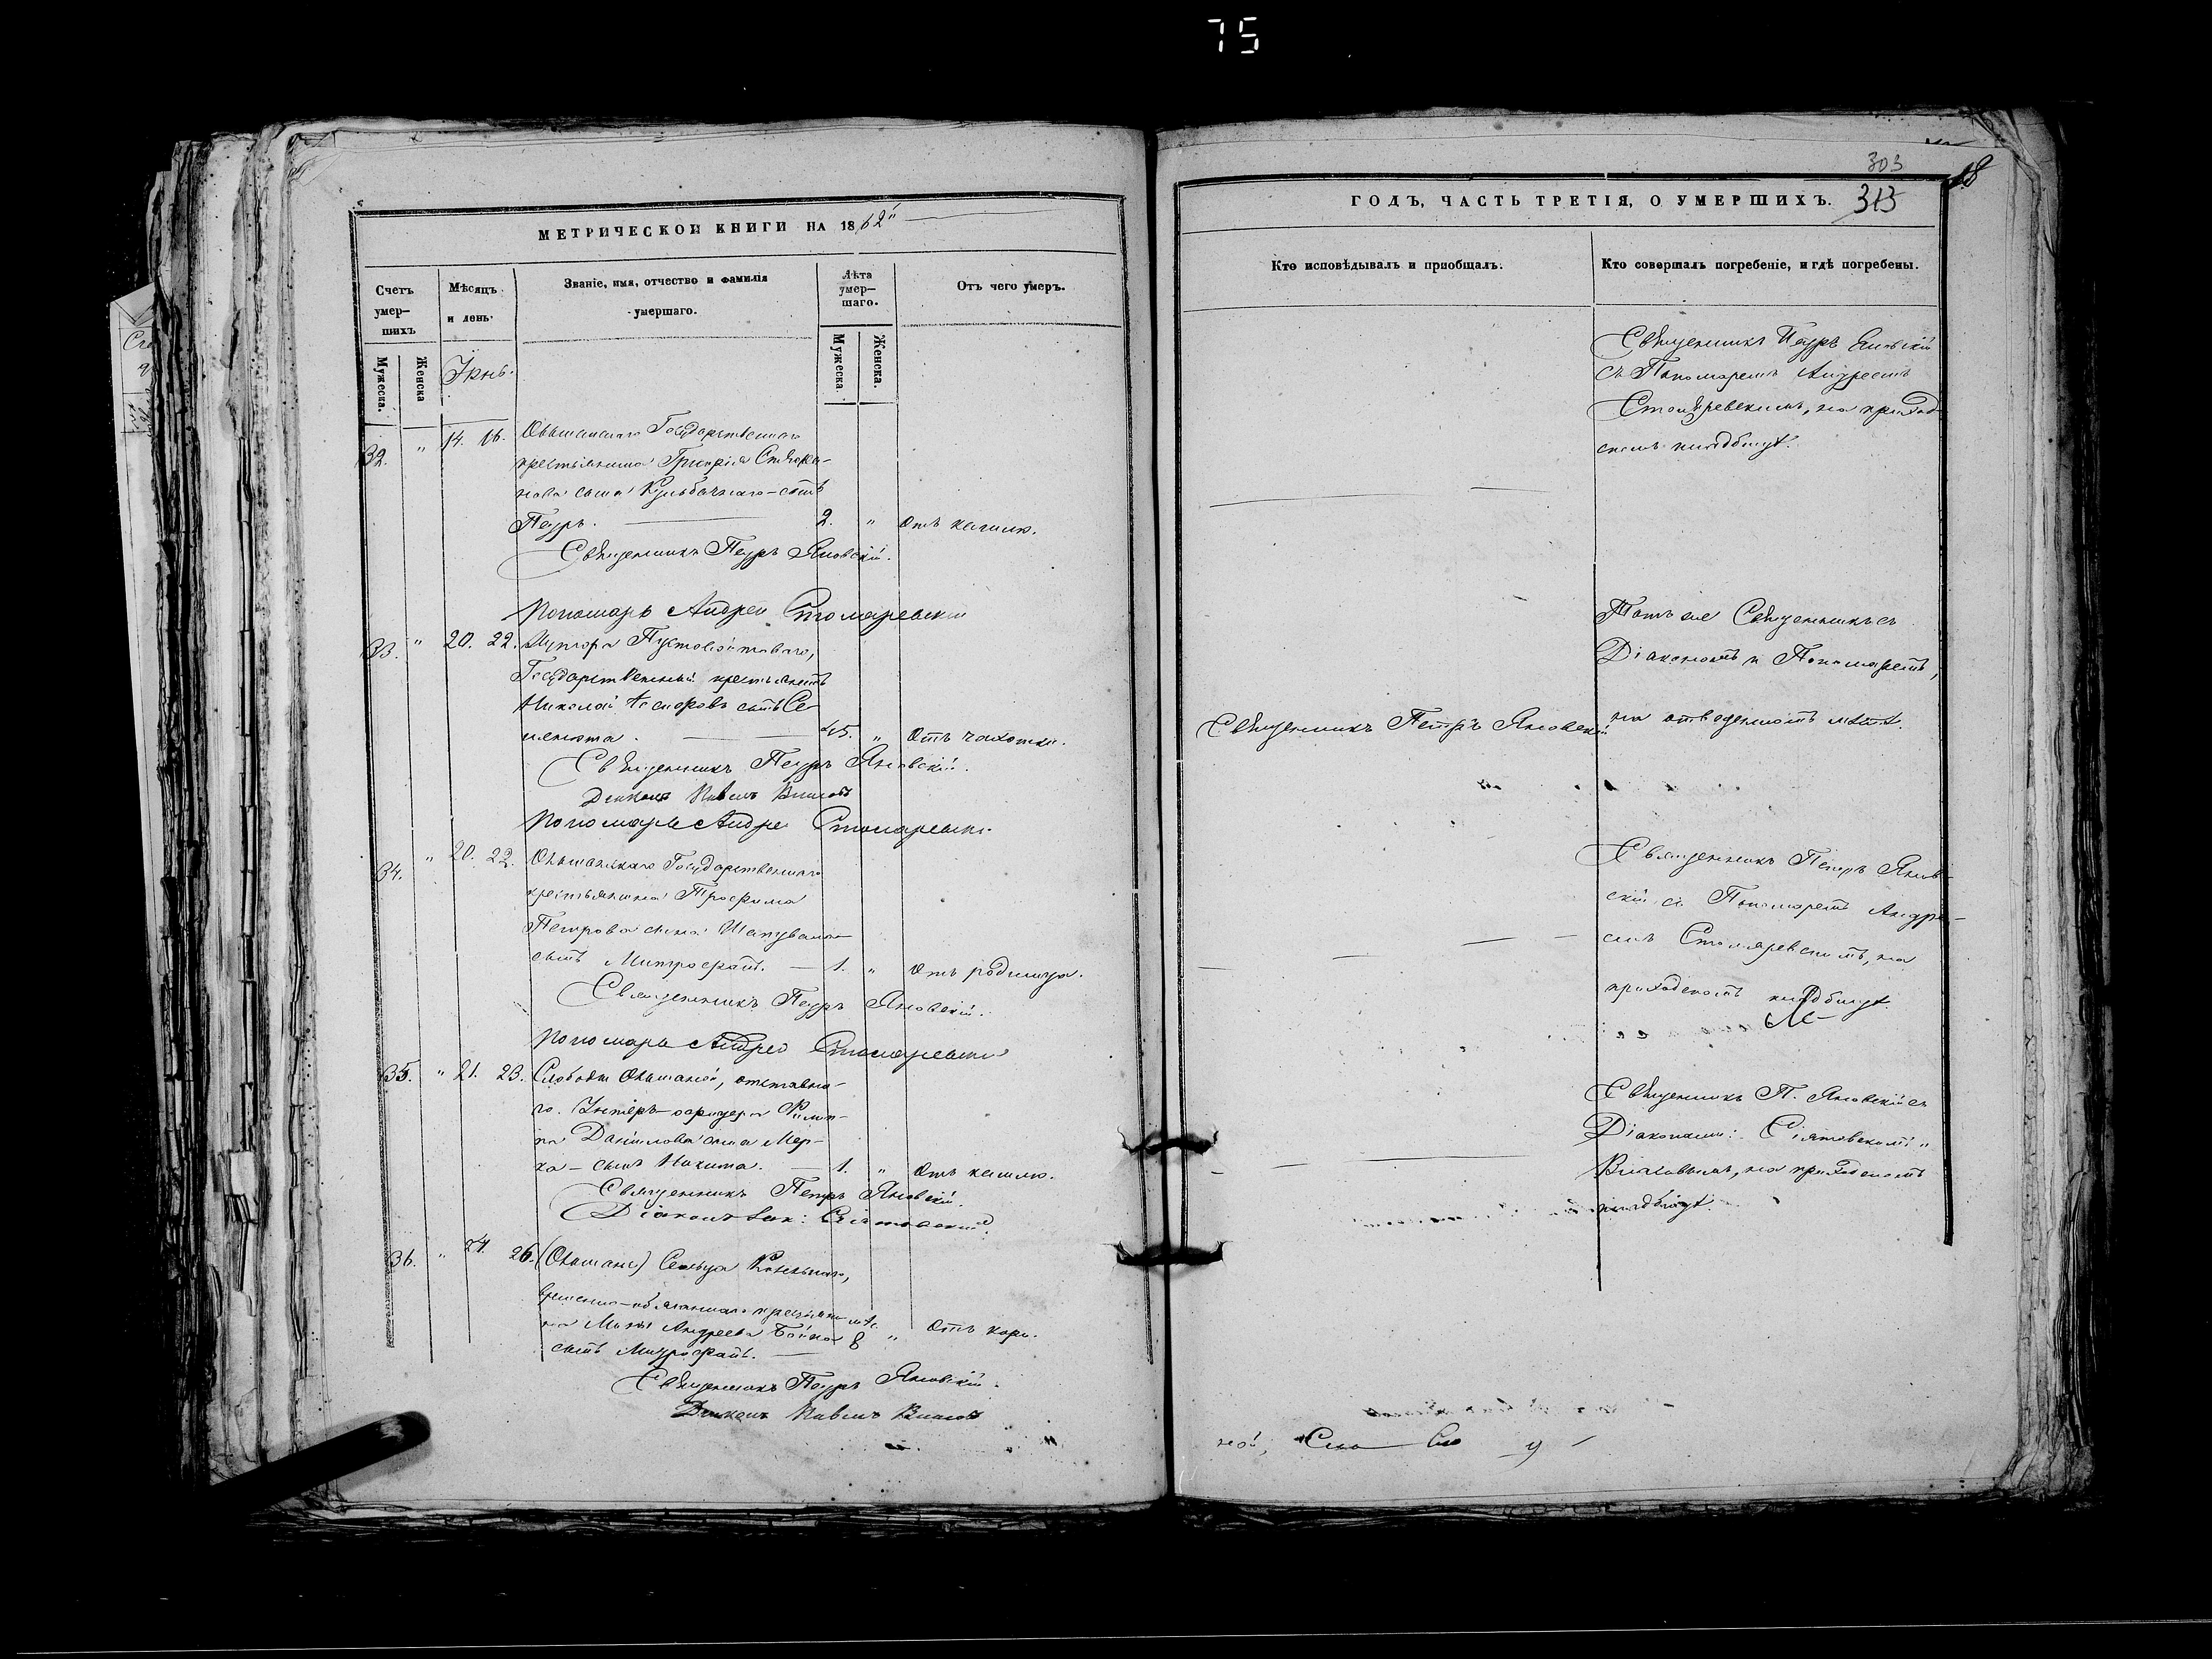 75
МЕТРИЧЕСКОЙ КНИГИ НА 1862й
Счетъ
умер-
шихъ
Мѣсяцъ
и день.
Званіе, имя, отчество и фамилія
умершаго.
Лѣта
умер-
шаго.
Отъ чего умеръ.
Мужеска.
Женска
Мужеска.
Женска.
Іюнь.
32. " 14. 16. Ольшанскаго Государственнаго
крестьянина Григорія
сына сынъ
Петръ. 2. " Отъ кашлю.
Священникъ Петръ Яновскій.
Пономарь Андрей Столяревскій
33. " 20. 22. Хутора Пустовойтоваго,
Государственный крестьянинъ
Николай сынъ Се-
45. " Отъ чахотки.
Священникъ Петръ Яновскій.
Діаконъ Павелъ
Пономарь Андрей Столяревскій
34. " 20. 22. Ольшанскаго Государственнаго
крестьянина Трофима
Петрова сына Шаповала
сынъ Митрофанъ. — 1. " Отъ родимца.
Священникъ Петръ Яновскій.
Пономарь Андрей Столяревскій
35. " 21. 23. Слободы Ольшаной, отставна-
го Унтеръ-офицера Филип-
па Данилова сына Мер-
ка — сынъ Никита. — 1. " Отъ кашлю.
Священникъ Петръ Яновскій.
Діаконъ
36. " 24. 26. (Ольшан:) Сельца
временно-обязаннаго крестьяни-
на Андреева Бойка 8 " Отъ кори.
сынъ Митрофанъ.
Священникъ Петръ Яновскій.
Діаконъ Павелъ
303
18
ГОДЪ, ЧАСТЬ ТРЕТІЯ, О УМЕРШИХЪ. 313
Кто исповѣдывалъ и пріобщалъ.
Кто совершалъ погребеніе, и гдѣ погребены.
Священникъ Петръ Яновскій
съ Пономаремъ Андреемъ
Столяревскимъ, на приход-
скомъ кладбищѣ.
Тотъ же Священникъ съ
Діакономъ и Пономаремъ,
Священникъ Петръ Яновскій
на отведенномъ мѣстѣ.
Священникъ Петръ Янов-
скій съ Пономаремъ Андре-
емъ Столяревскимъ, на
приходскомъ кладбищѣ.
Священникъ П. Яновскій съ
Діаконами:
на приходскомъ
кладбищѣ.